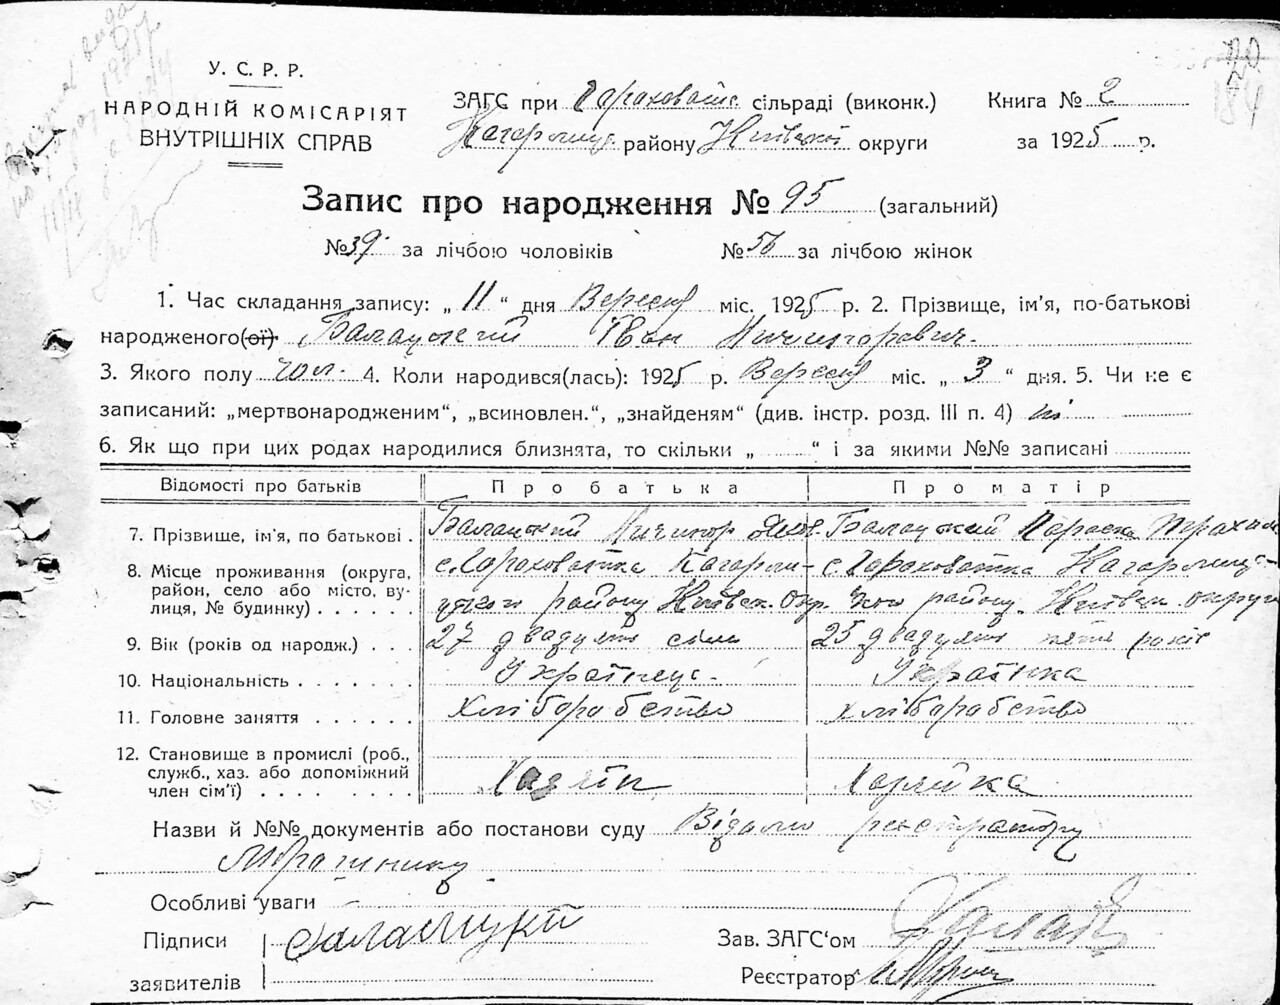 У. С. Р. Р.
НАРОДНІЙ КОМІСАРІЯТ
ВНУТРІШНІХ СПРАВ
ЗАГС при сільраді (виконк.) Книга № 2
району округи за 1925 р.
Запис про народження № 95 (загальний)
№ 39 за лічбою чоловіків № 56 за лічбою жінок
1. Час складання запису: „ 11 “ дня Вересня міс. 1925 р. 2. Прізвище, ім'я, по-батькові
народженого(ої) Балацький Іван Ничипорович
3. Якого полу чол. 4. Коли народився(лась): 1925 р. Вересня міс. „ 3 “ дня. 5. Чи не є
записаний: „мертвонародженим“, „всиновлен.“, „знайденям“ (див. інстр. розд. III п. 4) ні
6. Як що при цих родах народилися близнята, то скільки „ “ і за якими №№ записані
Відомості про батьків Про батька Про матір
7. Прізвище, ім'я, по батькові . Балацький Ничипор Балацький Параска
8. Місце проживання (округа,
район, село або місто, ву-
лиця, № будинку) . . . . . . району району округи
9. Вік (років од народж.) . . . 27 двадцять сім 25 двадцять пять років
10. Національність . . . . . . Українець Українка
11. Головне заняття . . . . . . хліборобство хліборобство
12. Становище в промислі (роб.,
служб., хаз. або допоміжний
член сім'ї) . . . . . . . . Хазяїн Хазяйка
Назви й №№ документів або постанови суду Відомо реєстратору
Особливі уваги
Підписи
заявителів
Зав. ЗАГС‘ом
Реєстратор
20
184